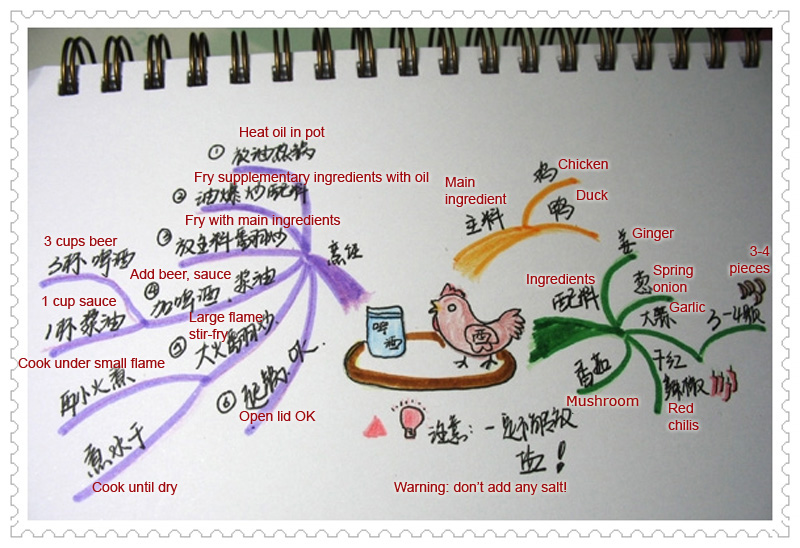 Heat oil in pot
① 放油热锅
Fry supplementary ingredients with oil
② 油爆炒配料
Fry with main ingredients
③ 放主料翻炒
3 cups beer
3杯啤酒
Add beer, sauce
④ 加啤酒、浆油
1 cup sauce
1杯浆油
Large flame,
stir-fry
⑤ 大火翻炒
Cook under small flame
再小火煮
⑥ OK.
Open lid OK
煮水干
Cook until dry
Main
ingredient
主料
鸡
Chicken
Duck
鸭
啤
酒
Ingredients
配料
姜
Ginger
葱
Spring
onion
Garlic
大蒜
3-4
pieces
3-4颗
干红
辣椒
Red
chilis
香菇
Mushroom
注意：一定不能放
盐！
Warning: don't add any salt!